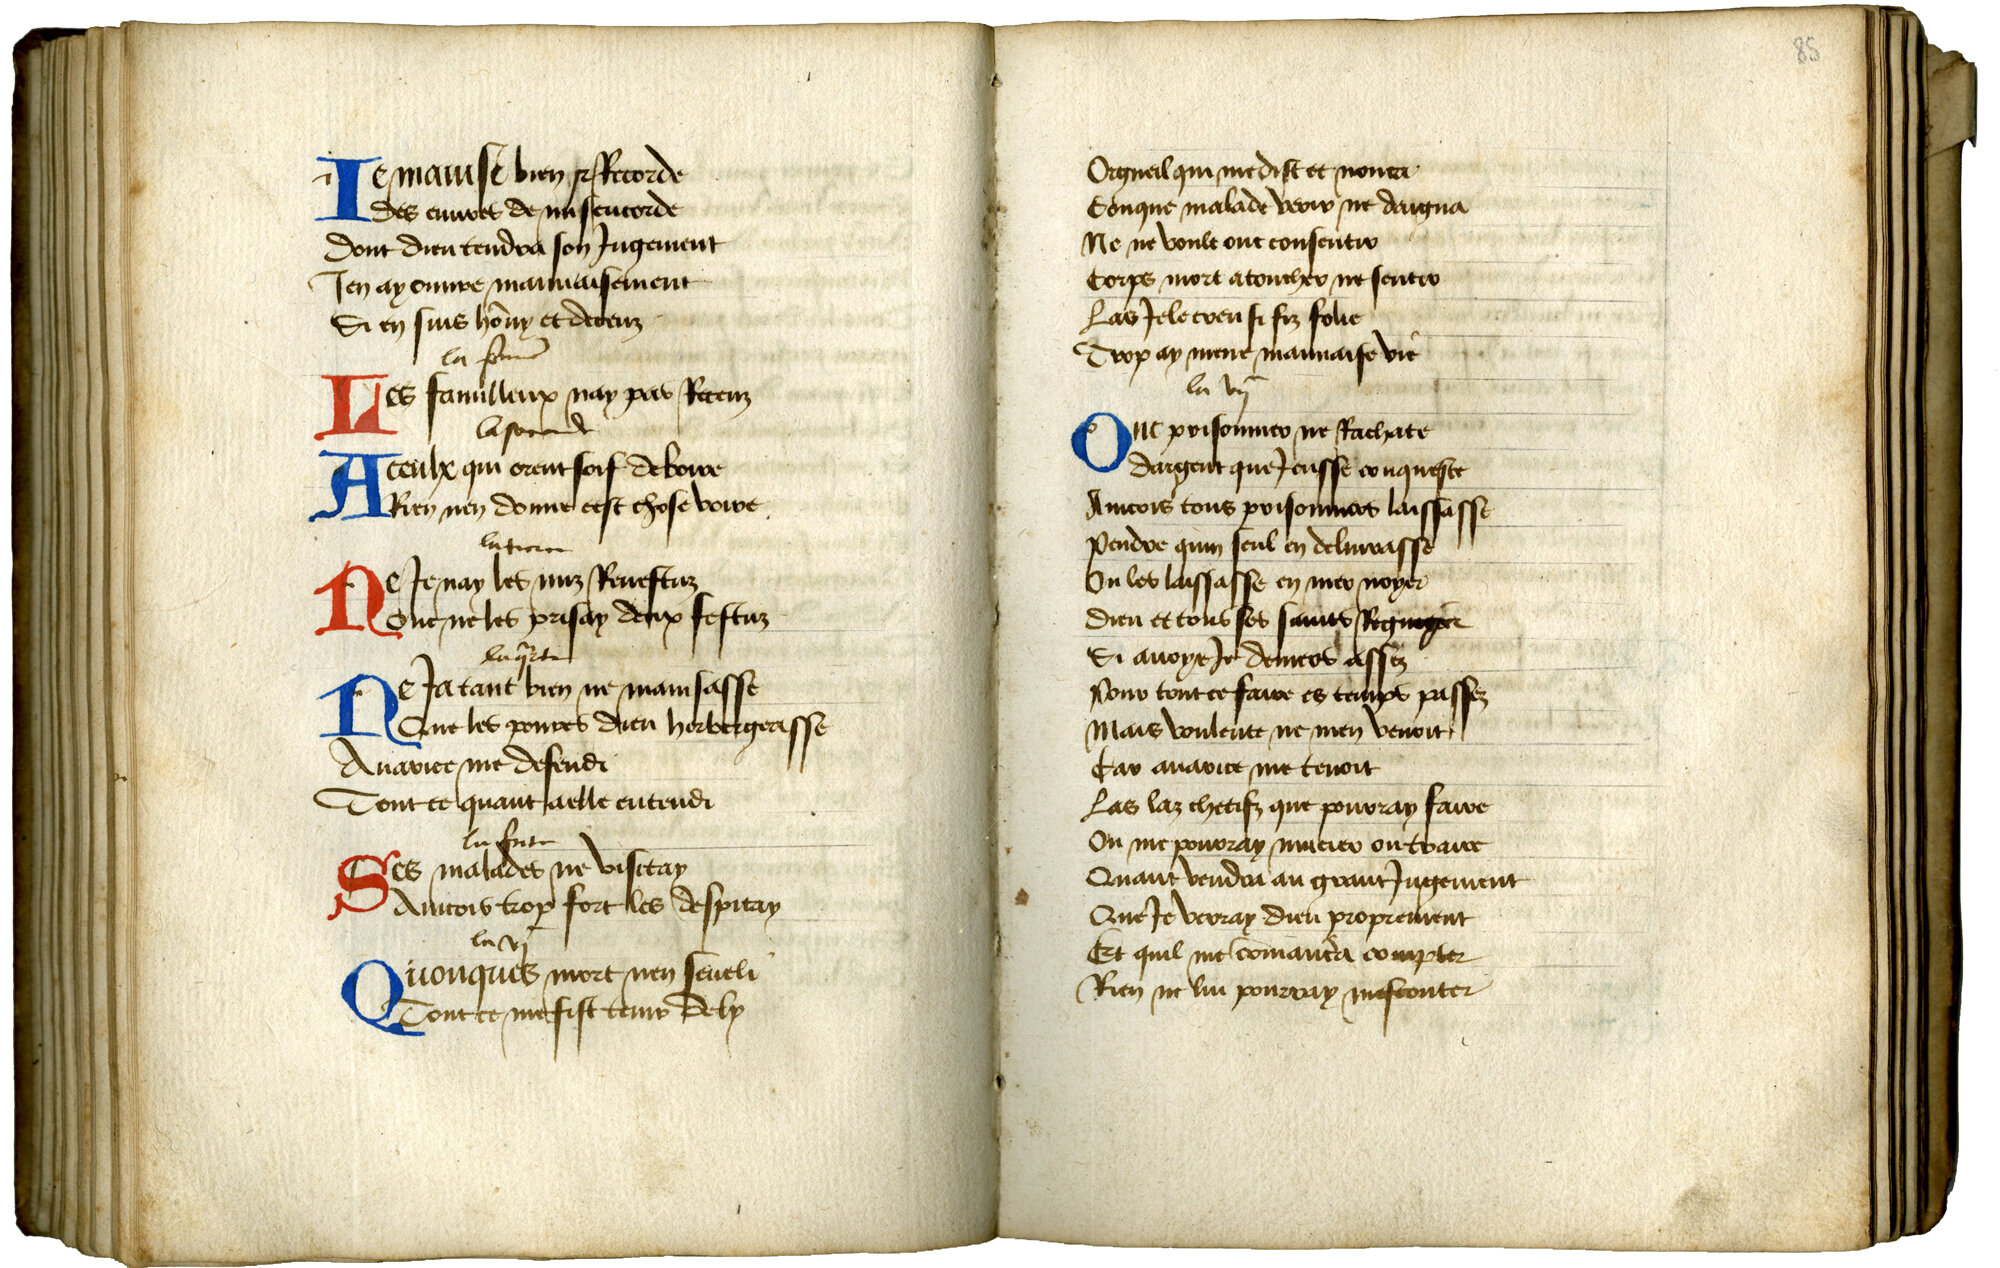 Je mavise bien et Recorde
des euvres de misericorde
dont dieu tendra son Jugement
Jen ay ouvre mauvaisement
Si en suis honny et deceuz
la
Les familleux nay pas Receuz
la seconde
A ceulx qui orent soif de boire
Rien nen donne cest chose voire
la tierce
Ne Je nay les nuz Revestuz
Onc ne les prisay deux festuz
la quarte
Ne Ja tant bien ne mavisasse
Que les povres dieu herbergasse
Avarice me defendi
Tout ce quant a elle entendi
la
Ses malades ne visitay
Aincois trop fort les despitay
la vi
Quonques mort nen seveli
Tout ce me fist tenir de ly
85
Orgueil qui me dist et nonca
Conque malade veoir ne daigna
Ne ne voult onc consentir
Corps mort atoucher ne sentir
Las Je le creu si fiz folie
Trop ay mene mauvaise vie
la vij
Onc prisonnier ne Rachate
dargent que Jeusse conqueste
Aincois tous prisonniers laissasse
Pendre quun seul en delivrasse
Ou les laissasse en mer noyer
Dieu et tous ses saints
Si avoye Je deniers assez
Pour tout ce faire es temps passez
Mais voulente ne men venoit
Car avarice me tenoit
Las laz chetifz que pourray faire
Ou me pourray mucier ou traire
Quant vendra au grant Jugement
Que Je verray dieu proprement
Et quil me commandera compter
Rien ne lui pourray mesconter